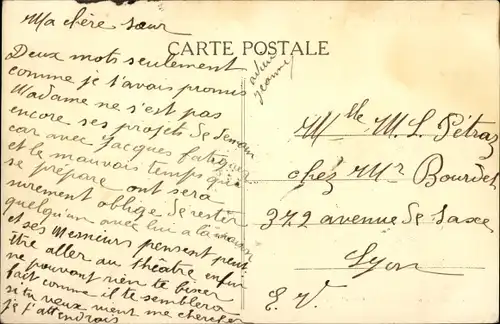 Ma chère sœur
CARTE POSTALE
Deux mots seulement
comme je t'avais promis
Madame ne s'est pas
encore ses projets de demain
car avec Jacques fatigué
et le mauvais temps qui
se prépare ont sera
surement obligé de rester
quelqu'un avec lui a la maison
et ses Messieurs pensent peut
être aller au théâtre enfin
ne pouvant rien te fixer
fait comme il te semblera
si tu veux vient me chercher
je t'attendrais
adieu
Jeanne
Mlle M. L. Pétraz
chez Mr Bourdet
372 avenue de Saxe
Lyon
E. V.